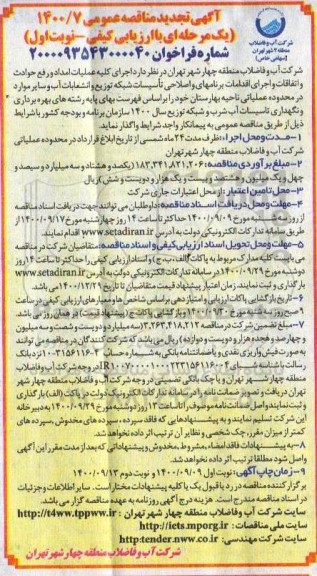 آگهی تجدید مناقصه عمومی ۱۴۰۰/۷
(یک مرحله‌ای با ارزیابی کیفی - نوبت اول)
شماره فراخوان ۲۰۰۰۰۹۳۵۴۳۰۰۰۰۴۰
شرکت آب و فاضلاب
منطقه ۴ شهر تهران
(سهامی خاص)
شرکت آب و فاضلاب منطقه چهار شهر تهران در نظر دارد اجرای کلیه عملیات امداد و رفع حوادث
و اتفاقات و اجرای اقدامات برنامه‌ای و اصلاحی تأسیسات شبکه توزیع و انشعابات آب و سایر موارد
در محدوده عملیاتی ناحیه بهارستان خود را براساس فهرست بهای پایه رشته های بهره برداری
و نگهداری تأسیسات آب شرب و شبکه توزیع سال ۱۴۰۰ سازمان برنامه و بودجه کشور با شرایط
ذیل از طریق مناقصه عمومی به پیمانکار واجد شرایط واگذار نماید.
۱- مدت و محل اجراء: ظرف مدت ۲۴ ماه شمسی از تاریخ ابلاغ قرارداد در محدوده عملیاتی
شرکت آب و فاضلاب منطقه چهار شهر تهران
۲- مبلغ برآوردی مناقصه: ۱۸۳,۳۴۱,۸۲۱,۲۰۶ (یکصد و هشتاد و سه میلیارد و سیصد و
چهل و یک میلیون و هشتصد و بیست و یک هزار و دویست و شش) ریال
۳- محل تامین اعتبار: از محل اعتبارات جاری شرکت
۴- مهلت و محل دریافت اسناد مناقصه: داوطلبان می توانند جهت دریافت اسناد مناقصه
از روز سه شنبه مورخ ۱۴۰۰/۰۹/۰۹ حداکثر تا ساعت ۱۴ روز چهارشنبه مورخ ۱۴۰۰/۰۹/۱۷ از
طریق سامانه تدارکات الکترونیکی دولت به آدرس www.setadiran.ir اقدام نمایند.
۵- مهلت و محل تحویل اسناد ارزیابی کیفی و اسناد مناقصه: متقاضیان شرکت در مناقصه
می بایست کلیه مدارک مربوط به پاکات (الف، ب، ج) و اسناد ارزیابی کیفی را حداکثر تا ساعت ۱۴ روز
دوشنبه مورخ ۱۴۰۰/۰۹/۲۹ در سامانه تدارکات الکترونیکی دولت به آدرس www.setadiran.ir
بارگذاری و ثبت نمایند. زمان اعتبار پیشنهاد قیمت متقاضیان تا تاریخ ۱۴۰۰/۱۲/۲۹ می باشد.
۶- تاریخ بازگشایی پاکات: ارزیابی و امتیازدهی براساس شاخص ها و معیارهای ارزیابی کیفی در ساعت
۹ صبح روز سه شنبه مورخ ۱۴۰۰/۰۹/۳۰ و بازگشایی پاکات ج (پیشنهاد قیمت) در همان روز می باشد.
۷- مبلغ تضمین شرکت در مناقصه ۳,۲۶۳,۴۱۸,۲۱۲ (سه میلیارد و دویست و شصت و سه میلیون
و چهارصد و هجده هزار و دویست و دوازده) ریال می باشد که شرکت کنندگان در مناقصه می توانند
منطقه چهار شهر تهران و یا چک بانکی تضمینی در وجه شرکت آب و فاضلاب منطقه چهار شهر
تهران دریافت و تصویر ضمانت نامه را در سامانه تدارکات الکترونیک دولت در پاکت (الف) بارگذاری
و ثبت نمایند و اصل ضمانت نامه موصوف را تا ساعت ۱۴ روز دوشنبه مورخ ۱۴۰۰/۰۹/۲۹ به دبیرخانه
این شرکت تسلیم نمایند و به پیشنهادهایی که فاقد سپرده، سپرده های مخدوش، سپرده های
کمتر از میزان مقرر، چک شخصی و نظایر آن ترتیب اثر داده نخواهد شد.
۸- به پیشنهادات فاقد امضاء، مشروط، مخدوش و پیشنهاداتی که بعد از مدت مقرر این آگهی
واصل شود مطلقا ترتیب اثر داده نخواهد شد.
۹- زمان چاپ آگهی: نوبت اول ۱۴۰۰/۰۹/۰۹ و نوبت دوم ۱۴۰۰/۰۹/۱۳
برگزار کننده مناقصه در رد یا قبول یک یا کلیه پیشنهادات مختار است. سایر اطلاعات و جزئیات
در اسناد مناقصه مندرج است. هزینه درج آگهی روزنامه به عهده مناقصه گزار می باشد.
سایت شرکت آب و فاضلاب منطقه چهار شهر تهران: http://t4ww.tppww.ir
سایت ملی مناقصات: http://iets.mporg.ir
سایت شرکت مهندسی: http:tender.nww.co.ir
شرکت آب و فاضلاب منطقه چهار شهر تهران